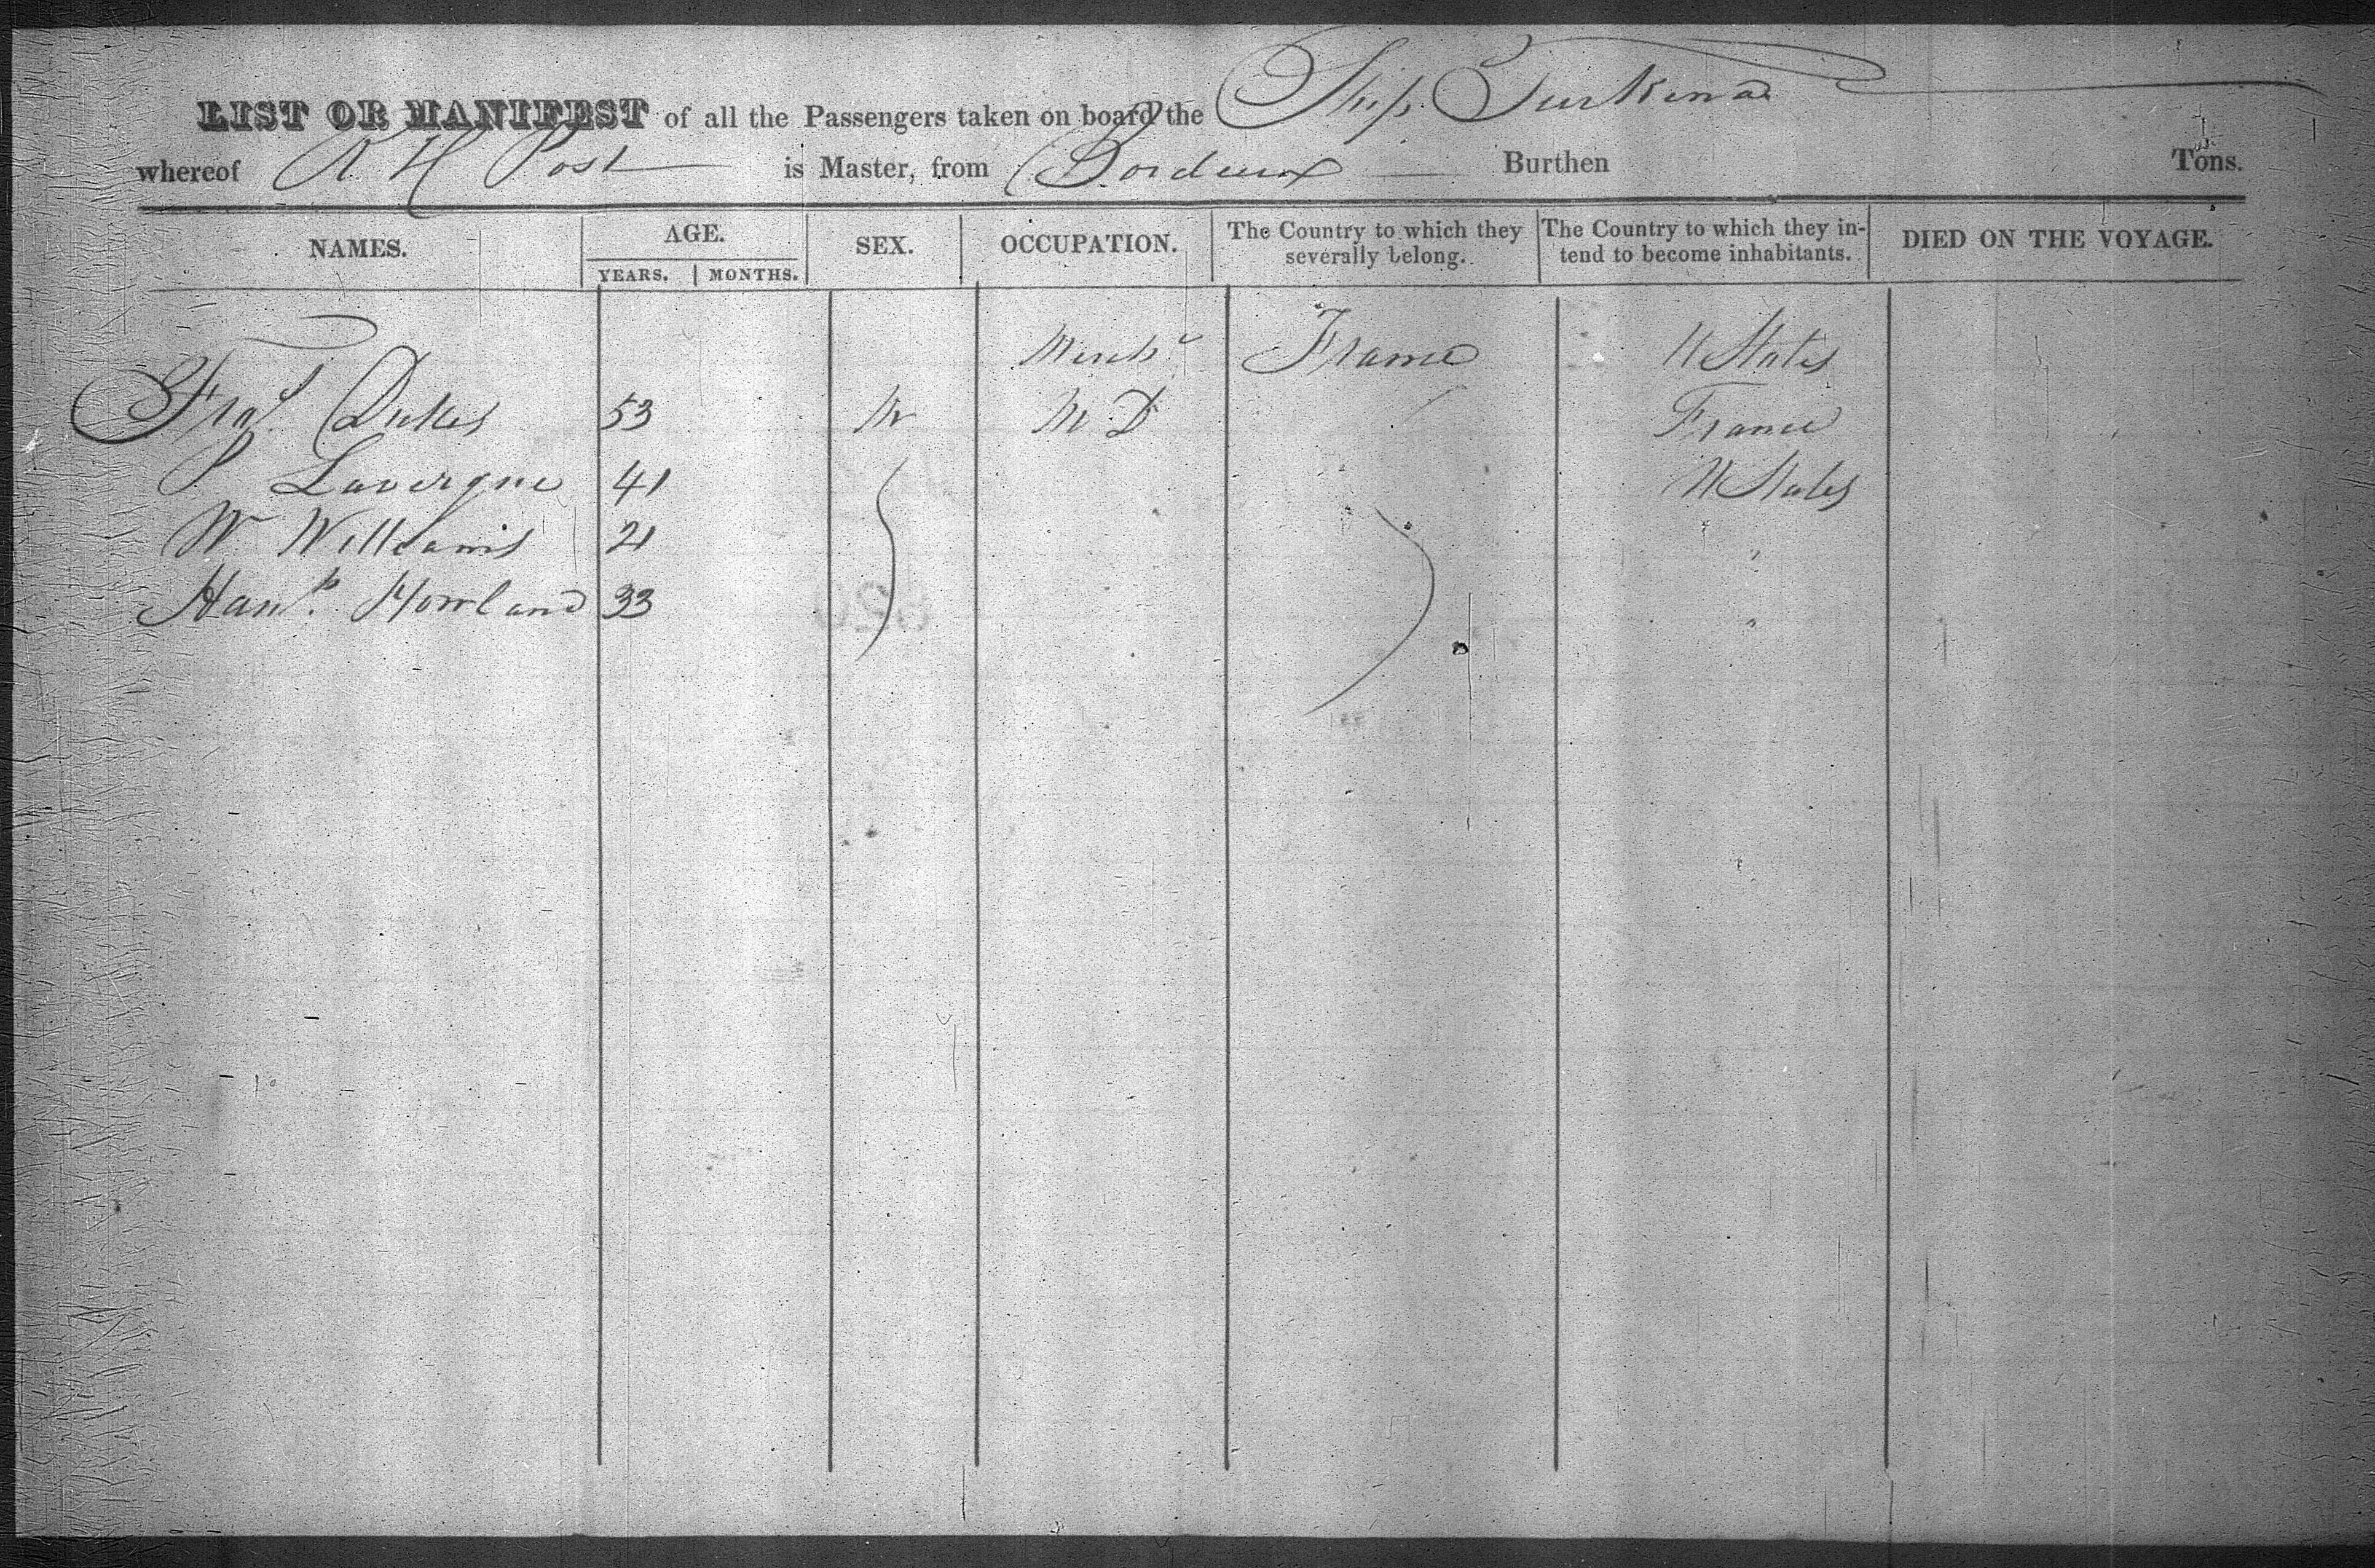 LIST OR MANIFEST of all the Passengers taken on board the Ship
whereof R H Post is Master, from Bordeux Burthen Tons.
NAMES. AGE. SEX. OCCUPATION. The Country to which they severally belong. The Country to which they in-tend to become inhabitants. DIED ON THE VOYAGE.
YEARS. MONTHS.
Mercht France U States
Fras 53 M M D France
P Lavergne 41 U States
W Williams 21 "
Howland 33 "